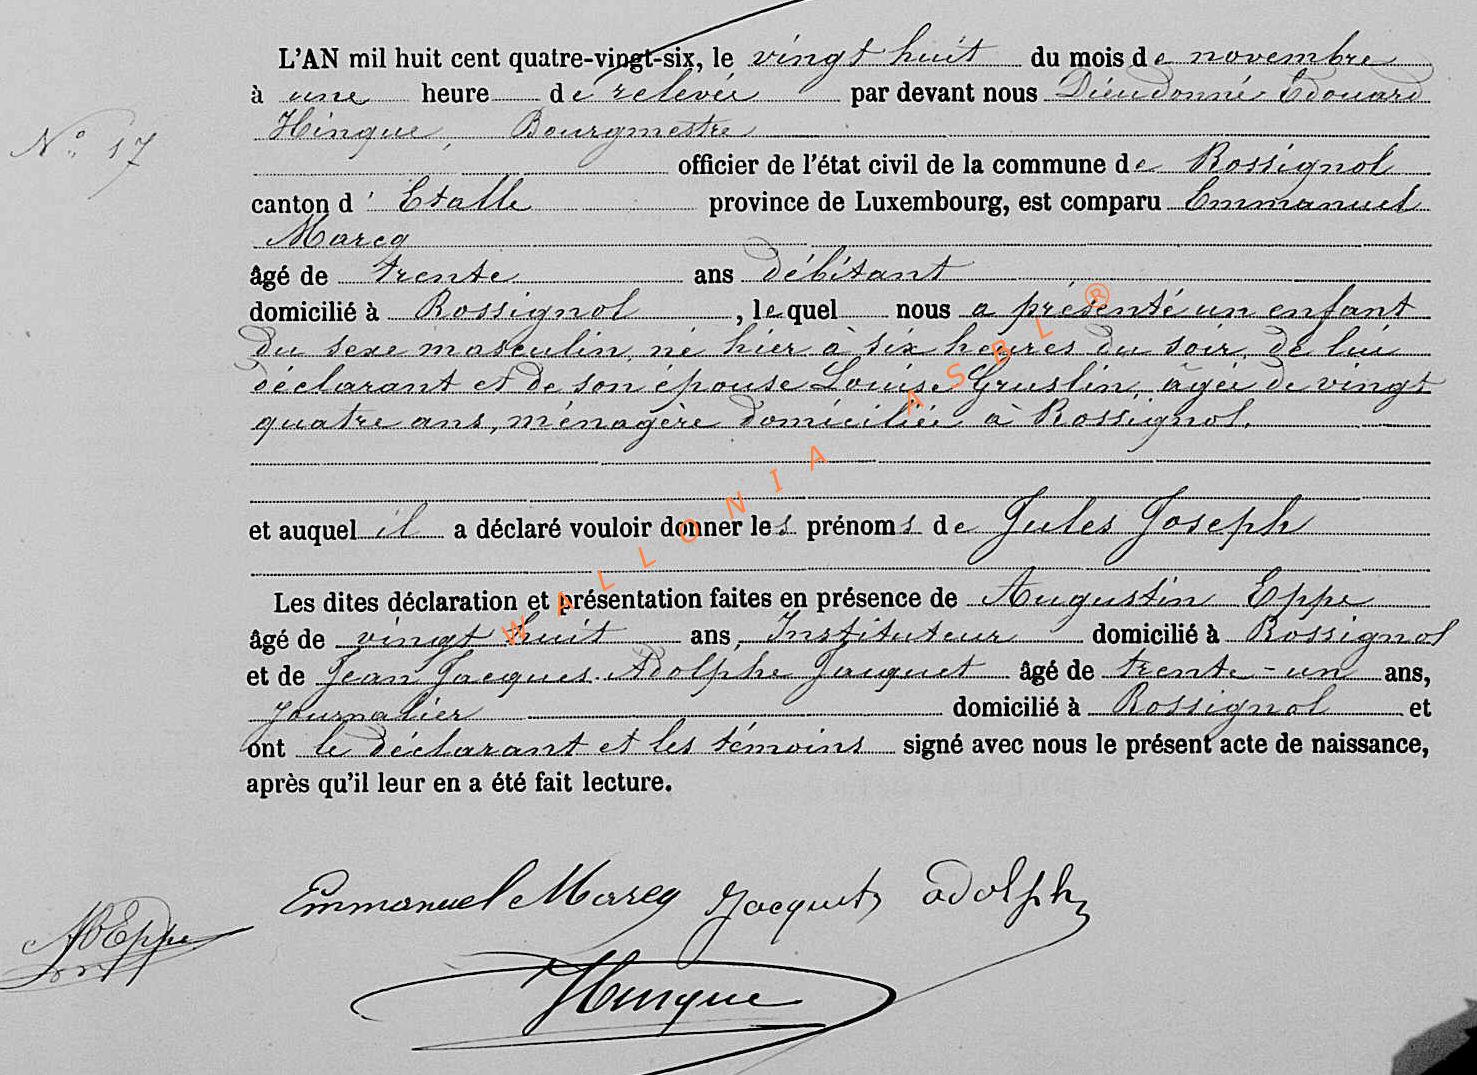 L'AN mil huit cent quatre-vingt-six, le vingt huit du mois de novembre
à une heure de relevée par devant nous Dieudonné Edouard
N° 17
Hinque, Bourgmestre
officier de l'état civil de la commune de Rossignol
canton d'Etalle province de Luxembourg, est comparu Emmanuel
Marcq
âgé de trente ans débitant
domicilié à Rossignol, lequel nous a présenté un enfant
du sexe masculin, né hier à six heures du soir, de lui
déclarant et de son épouse Louise Gruslin, âgée de vingt
quatre ans, ménagère domiciliée à Rossignol.
et auquel il a déclaré vouloir donner les prénoms de Jules Joseph
Les dites déclaration et présentation faites en présence de Augustin Eppe
âgé de vingt huit ans, Instituteur domicilié à Rossignol
et de Jean Jacques Adolphe Jacquet âgé de trente-un ans,
journalier domicilié à Rossignol et
ont le déclarant et les témoins signé avec nous le présent acte de naissance,
après qu'il leur en a été fait lecture.
Emmanuel Marcq Jacquet adolphe
Eppe
Hinque
WALLONIA ASBL ®